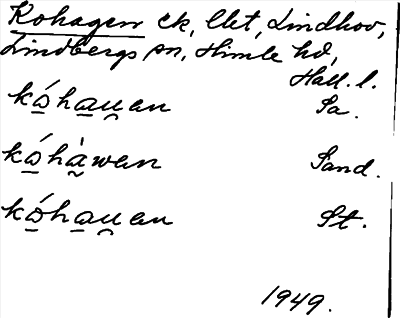 Kohagen ck, Uet, Lindhov,
Lindbergs sn, Himle hd,
Hall. l.
kó̱ha̱u̯en Sa.
kó̱hà̰wen Sand.
kó̱ha̱u̯en St.
1949.